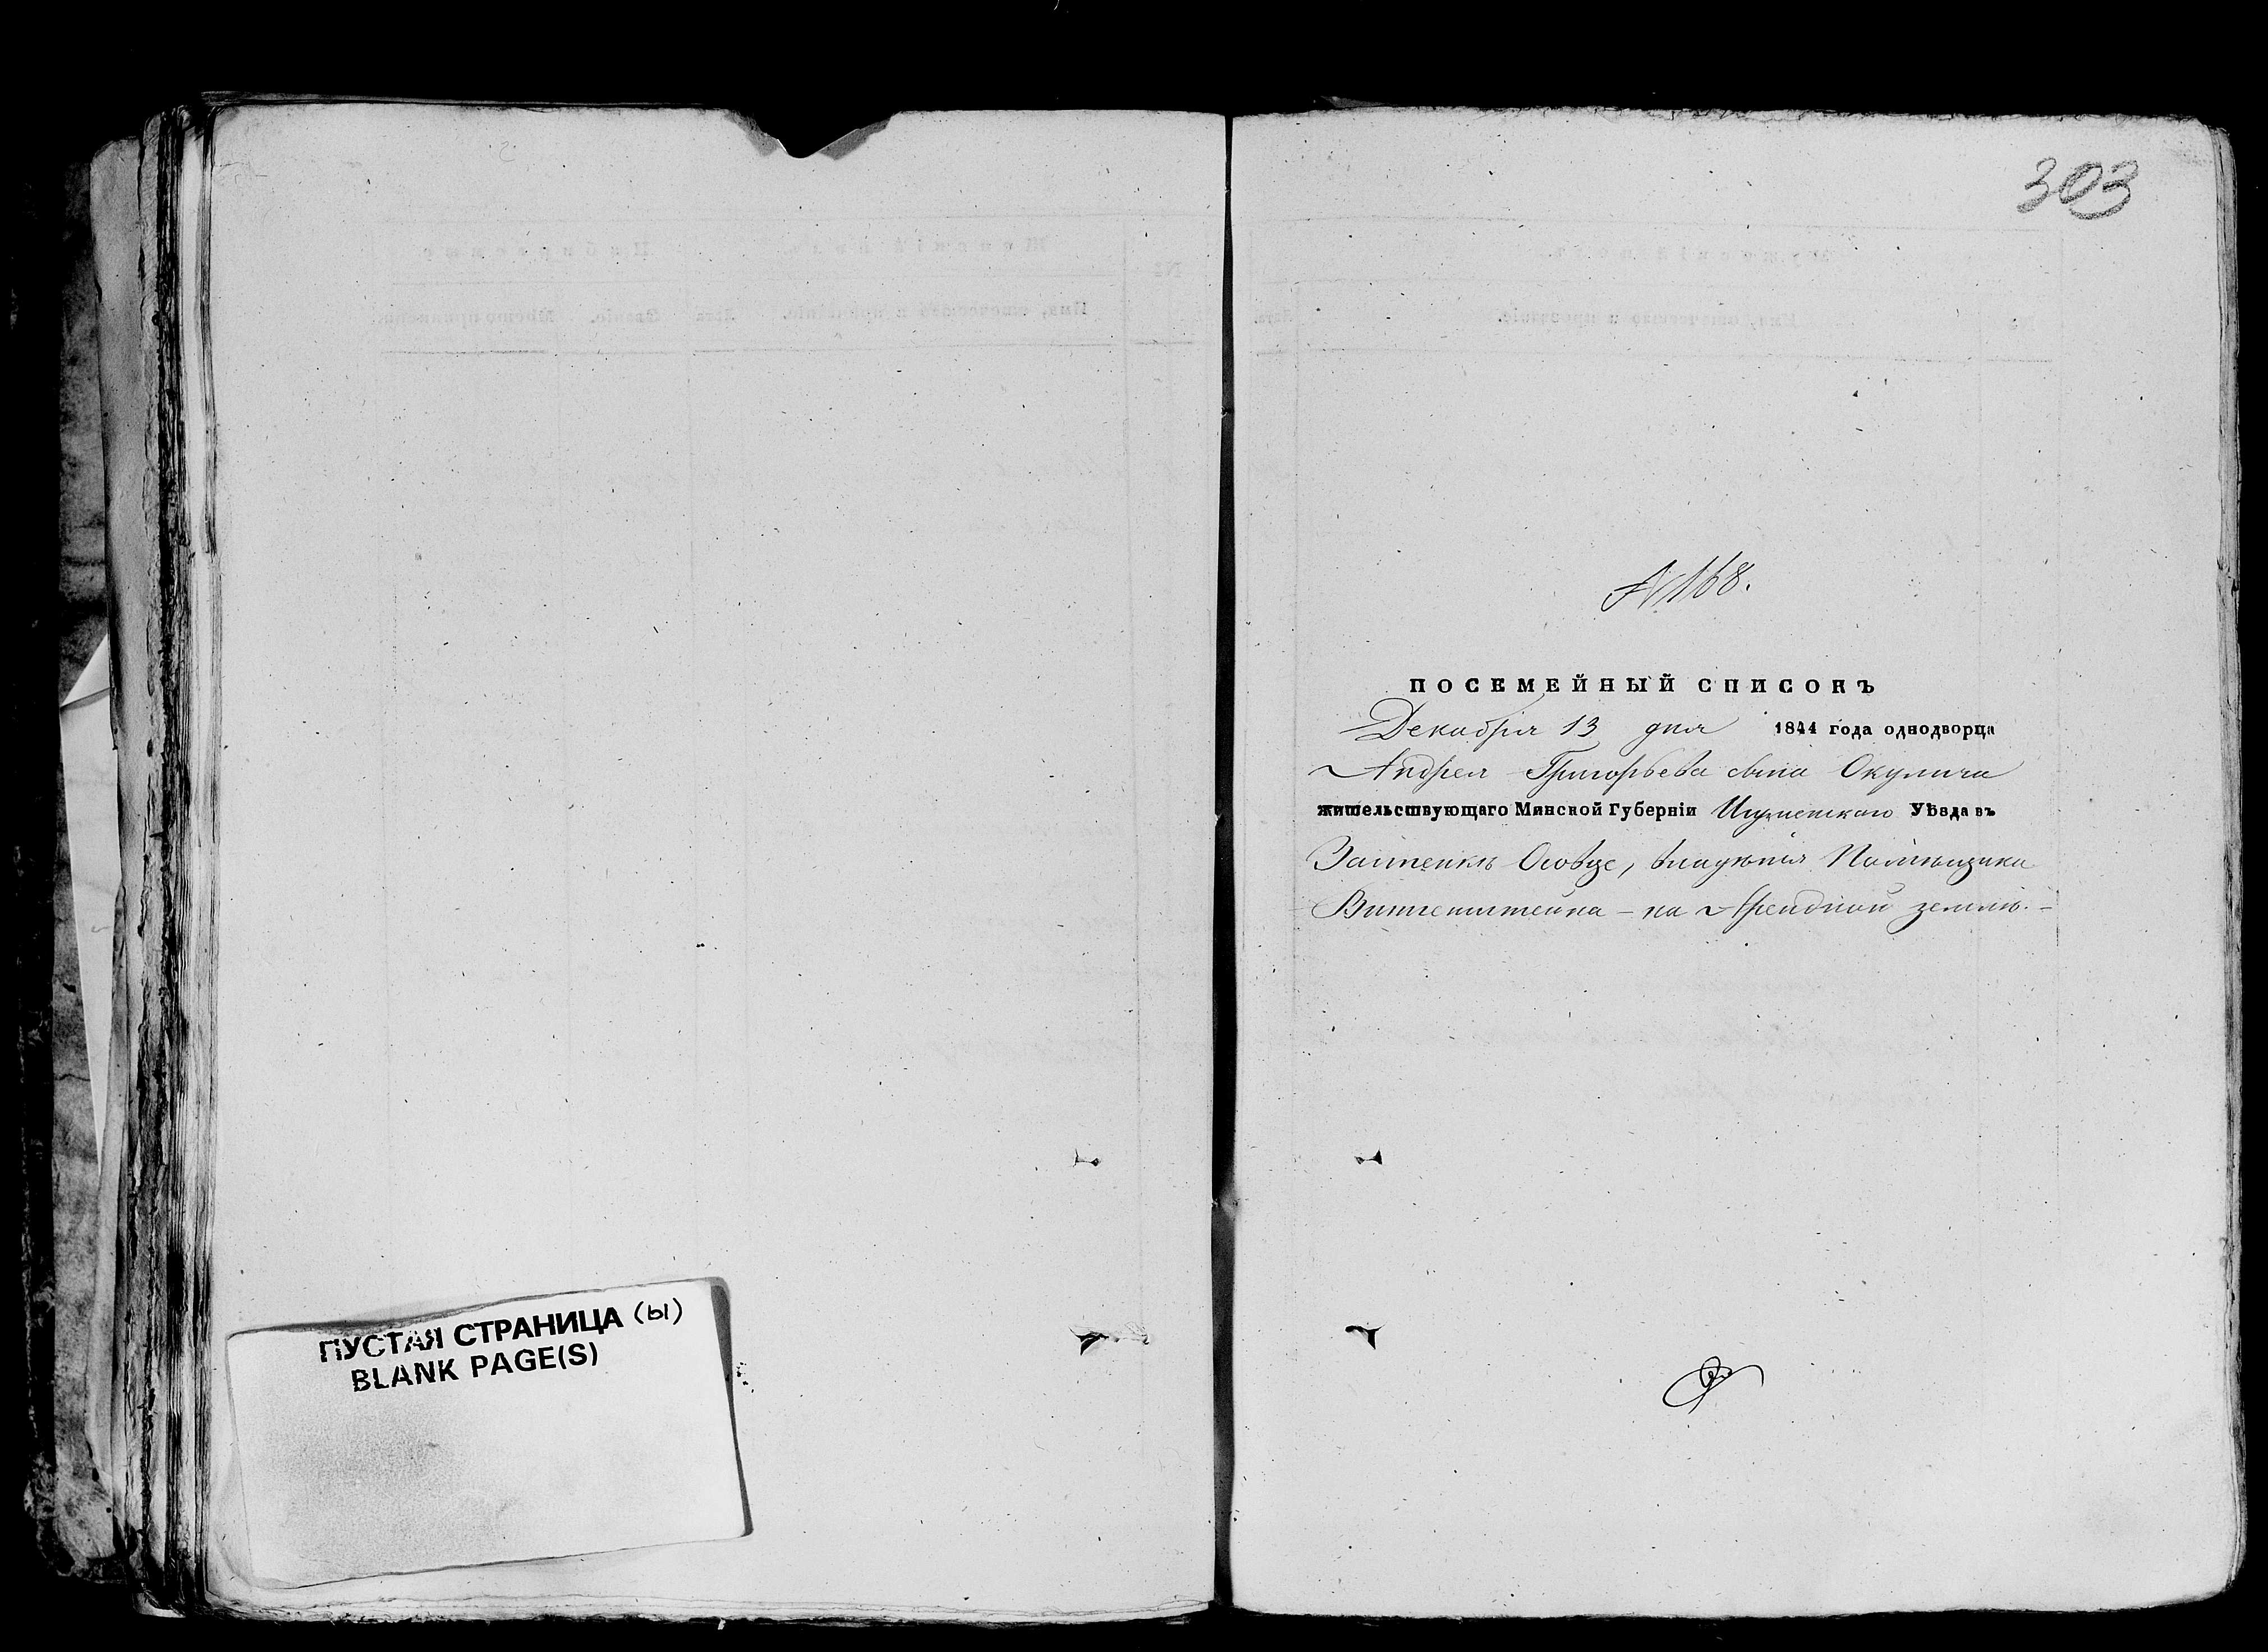 303
№ 168.
ПОСЕМЕЙНЫЙ СПИСОКЪ
Декабря 13 дня 1844 года однодворца
Андрея Григорьева сына Окулича
жительствующаго Минской Губерніи Игуменскаго Уѣзда въ
Застенкѣ Осовце, владѣнія Помѣщика
Витгенштейна – на Арендной землѣ. –
ПУСТАЯ СТРАНИЦА (Ы)
BLANK PAGE(S)